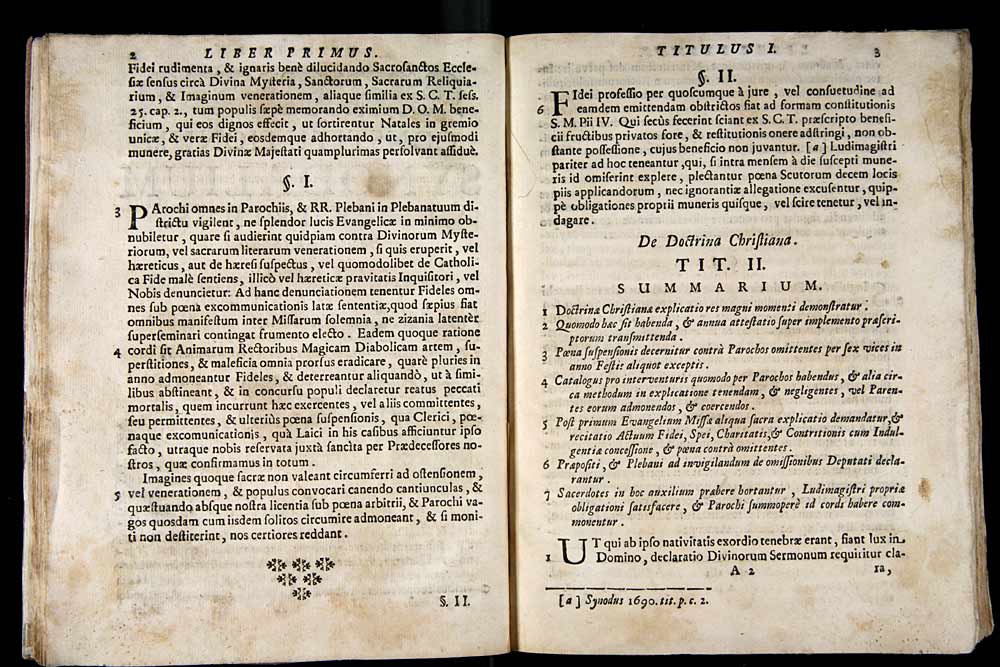 2 LIBER PRIMUS.
Fidei rudimenta, & ignaris benè dilucidando Sacrosanctos Eccle-
siæ sensus circà Divina Mysteria, Sanctorum, Sacrarum Reliquia-
rium, & Imaginum venerationem, aliaque similia ex S. C. T. sess.
25. cap. 2., tum populis sæpè memorando eximium D. O. M. bene-
ficium, qui eos dignos effecit, ut sortirentur Natales in gremio
unicæ, & veræ Fidei, eosdemque adhortando, ut, pro ejusmodi
munere, gratias Divinæ Majestati quamplurimas persolvant assiduè.
§. I.
3 PArochi omnes in Parochiis, & RR. Plebani in Plebanatuum di-
strictu vigilent, ne splendor lucis Evangelicæ in minimo ob-
nubiletur, quare si audierint quidpiam contra Divinorum Myste-
riorum, vel sacrarum literarum venerationem, si quis eruperit, vel
hæreticus, aut de hæresi suspectus, vel quomodolibet de Catholi-
ca Fide malè sentiens, illicò vel hæreticæ pravitatis Inquisitori, vel
Nobis denuncietur: Ad hanc denunciationem tenentur Fideles om-
nes sub pœna excommunicationis latæ sententiæ, quod sæpius fiat
omnibus manifestum inter Missarum solemnia, ne zizania latentèr
superseminari contingat frumento electo. Eadem quoque ratione
4 cordi sit Animarum Rectoribus Magicam Diabolicam artem, su-
perstitiones, & maleficia omnia prorsus eradicare, quarè pluries in
anno admoneantur Fideles, & deterreantur aliquandò, ut à simi-
libus abstineant, & in concursu populi declaretur reatus peccati
mortalis, quem incurrunt hæc exercentes, vel aliis committentes,
seu permittentes, & ulteriùs pœna suspensionis, qua Clerici, pœ-
naque excomunicationis, quà Laici in his casibus afficiuntur ipso
facto, utraque nobis reservata juxtà sancita per Prædecessores no-
stros, quæ confirmamus in totum.
Imagines quoque sacræ non valeant circumferri ad ostensionem,
5 vel venerationem, & populus convocari canendo cantiunculas, &
quæstuando absque nostra licentia sub pœna arbitrii, & Parochi va-
gos quosdam cum iisdem solitos circumire admoneant, & si moni-
ti non destiterint, nos certiores reddant.
§. II.
TITULUS I. 3
§. II.
FIdei professio per quoscumque à jure, vel consuetudine ad
6 eamdem emittendam obstrictos fiat ad formam constitutionis
S. M. Pii IV. Qui secùs fecerint sciant ex S. C. T. præscripto benefi-
cii fructibus privatos fore, & restitutionis onere adstringi, non ob-
stante possessione, cujus beneficio non juvantur. [a] Ludimagistri
pariter ad hoc teneantur, qui, si intra mensem à die suscepti mune-
ris id omiserint explere, plectantur pœna Scutorum decem locis
piis applicandorum, nec ignorantiæ allegatione excusentur, quip-
pè obligationes proprii muneris quisque, vel scire tenetur, vel in-
dagare.
De Doctrina Christiana.
TIT. II.
SUMMARIUM.
1 Doctrinæ Christianæ explicatio res magni momenti demonstratur.
2 Quomodo hæc sit habenda, & annua attestatio super implemento præscri-
ptorum transmittenda.
3 Pœna suspensionis decernitur contrà Parochos omittentes per sex vices in
anno Festis aliquot exceptis.
4 Catalogus pro interventuris quomodo per Parochos habendus, & alia cir-
ca methodum in explicatione tenendam, & negligentes, vel Paren-
tes eorum admonendos, & coercendos.
5 Post primum Evangelium Missæ aliqua sacra explicatio demandatur, &
recitatio Actuum Fidei, Spei, Charitatis, & Contritionis cum Indul-
gentiæ concessione, & pœna contrà omittentes.
6 Præpositi, & Plebani ad invigilandum de omissionibus Deputati decla-
rantur.
7 Sacerdotes in hoc auxilium præbere hortantur, Ludimagistri propriæ
obligationi satisfacere, & Parochi summoperè id cordi habere com-
monentur.
UT qui ab ipso nativitatis exordio tenebræ erant, fiant lux in
1 Domino, declaratio Divinorum Sermonum requiritur cla-
A 2 ra,
[a] Synodus 1690. tit. p. c. 2.